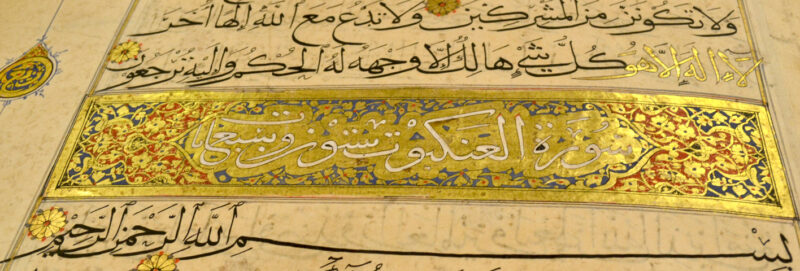 ولا تكونن من المشركين ولا تدع مع الله إلها آخر
لا إله إلا هو كل شيء هالك إلا وجهه له الحكم وإليه ترجعون
سورة العنكبوت ستون وتسع آيات
بسم الله الرحمن الرحيم